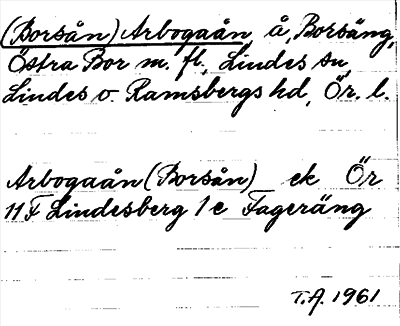 (Borsån) Arbogaån, å, Borsäng,
Östra Bor m. fl., Lindes sn
Lindes o. Ramsbergs hd, Ör. l.
Arbogaån (Borsån) ek Ör
11F Lindesberg 1e Fageräng
T.A. 1961